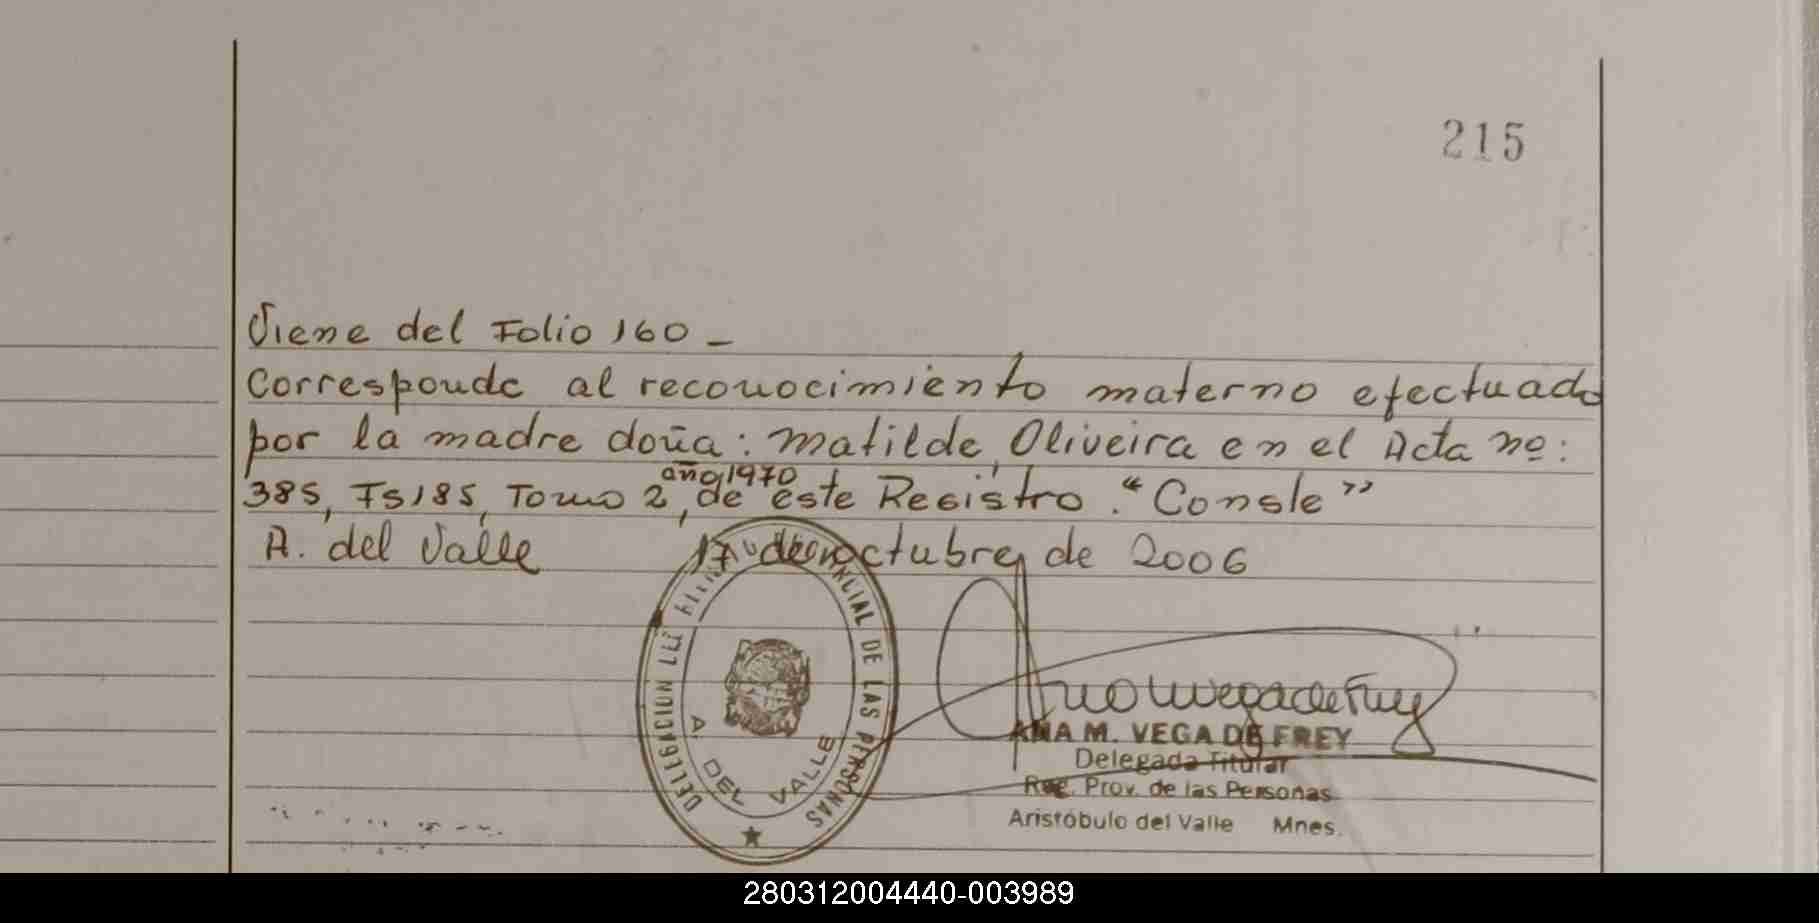 215
Viene del Folio 160 -
Corresponde al reconocimiento materno efectuado
por la madre doña: Matilde Oliveira en el Acta nº:
año 1970
385, Fs 185, Tomo 2, de este Registro. "Conste"
A. del Valle 17 de octubre de 2006
DELEGACION PROVINCIAL DE LAS PERSONAS
A. DEL VALLE
ANA M. VEGA DE FREY
Delegada Titular
Reg. Prov. de las Personas
Aristóbulo del Valle Mnes.
280312004440-003989